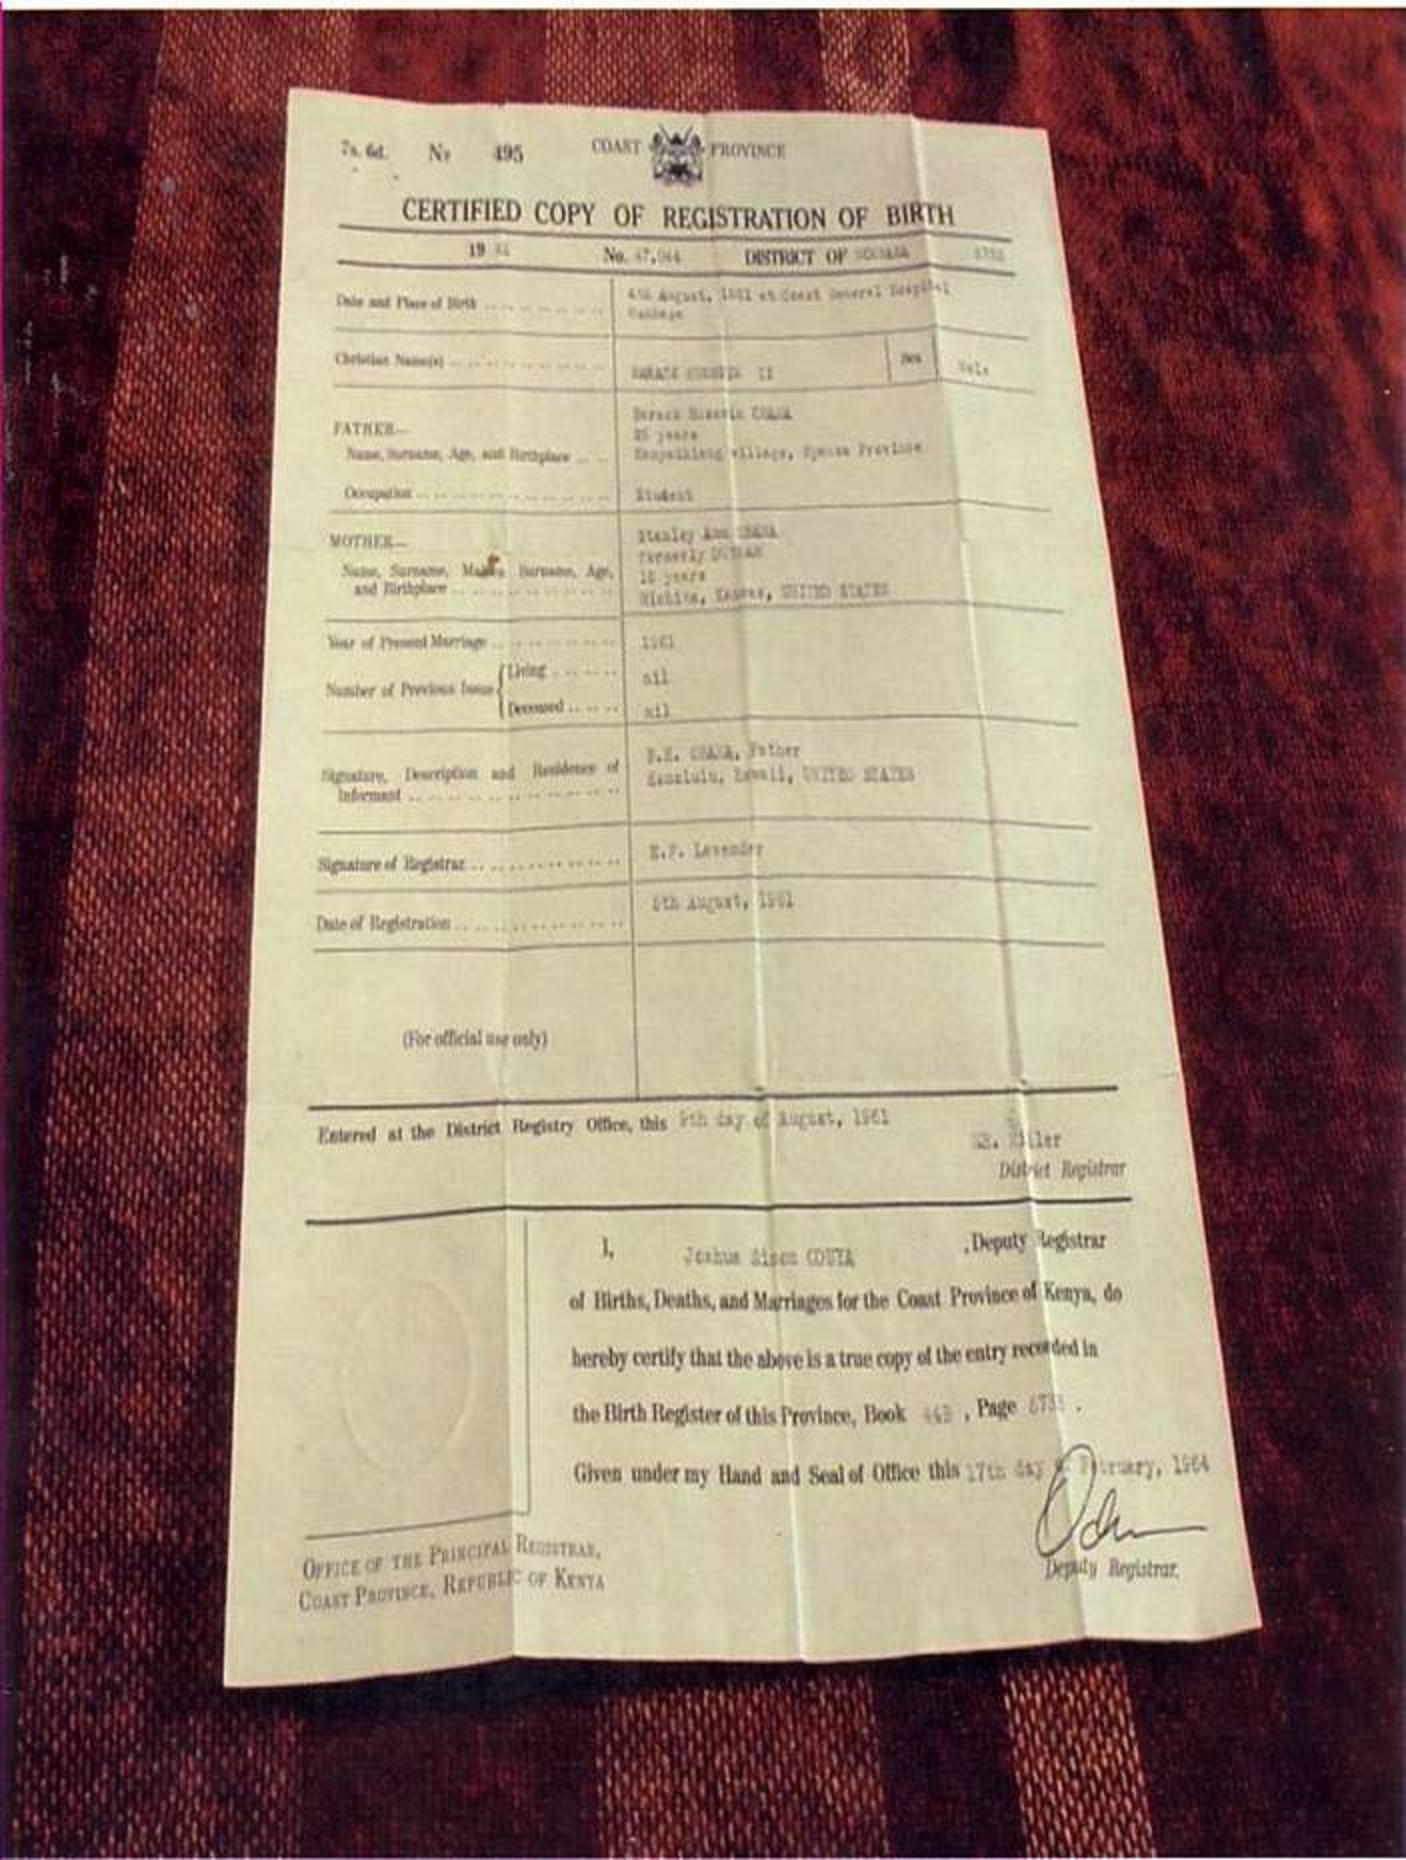 7s. 6d. No 495 COAST PROVINCE
CERTIFIED COPY OF REGISTRATION OF BIRTH
19 No. 47,044 DISTRICT OF
Date and Place of Birth 4th August, 1961 at Coast General Hospital
Christian Name(s) BARACK HUSSEIN II Sex Male
FATHER— Barack Hussein OBAMA
26 years
Name, Surname, Age, and Birthplace village, Nyanza Province
Occupation Student
MOTHER— Stanley Ann OBAMA
formerly DUNHAM
Name, Surname, Maiden Surname, Age, years
and Birthplace Wichita, Kansas, UNITED STATES
Year of Present Marriage 1961
Number of Previous Issue Living nil
Deceased nil
B.H. OBAMA, Father
Signature, Description and Residence of Honolulu, Hawaii, UNITED STATES
Informant
Signature of Registrar E.F. Lavender
Date of Registration 5th August, 1961
(For official use only)
Entered at the District Registry Office, this 9th day of August, 1961
Miller
District Registrar
I, Joshua Simon ODUYA , Deputy Registrar
of Births, Deaths, and Marriages for the Coast Province of Kenya, do
hereby certify that the above is a true copy of the entry recorded in
the Birth Register of this Province, Book 44B , Page .
Given under my Hand and Seal of Office this 17th day of February, 1964
Deputy Registrar.
OFFICE OF THE PRINCIPAL REGISTRAR,
COAST PROVINCE, REPUBLIC OF KENYA